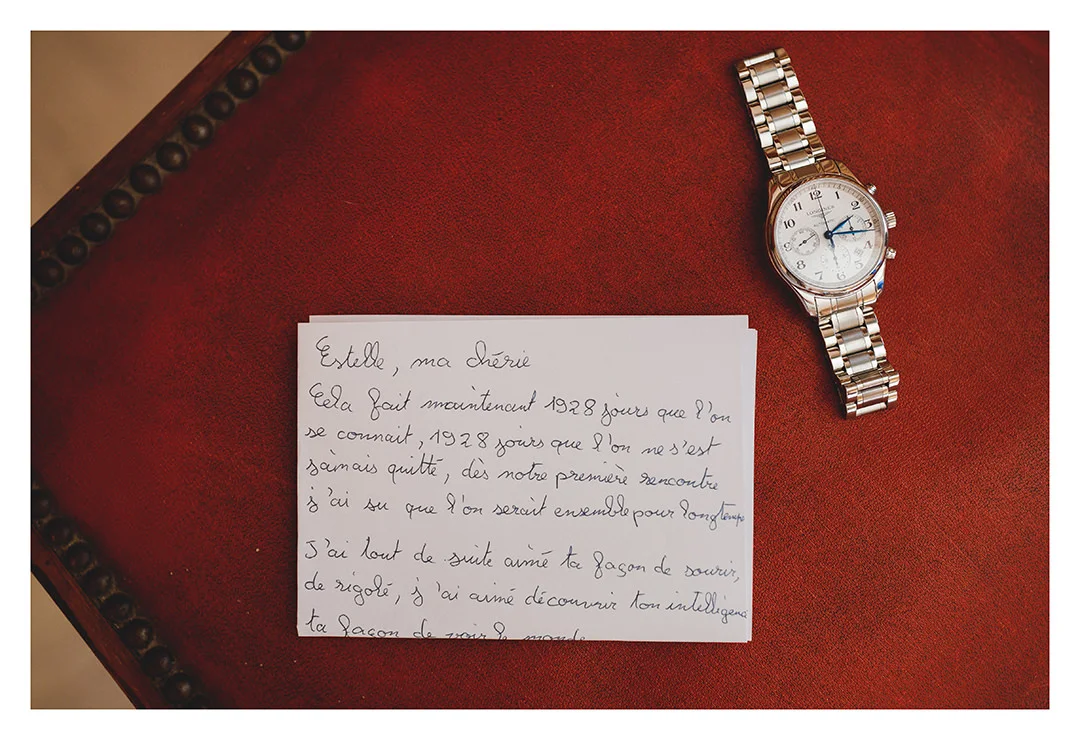 Estelle, ma chérie
Cela fait maintenant 1928 jours que l'on
se connait, 1928 jours que l'on ne s'est
jamais quitté, dès notre première rencontre
j'ai su que l'on serait ensemble pour longtemps
J'ai tout de suite aimé ta façon de sourir,
de rigolé, j'ai aimé découvrir ton intelligence
ta façon de voir le monde
LONGINES
AUTOMATIC
12
1
2
11
10
9
8
7
5